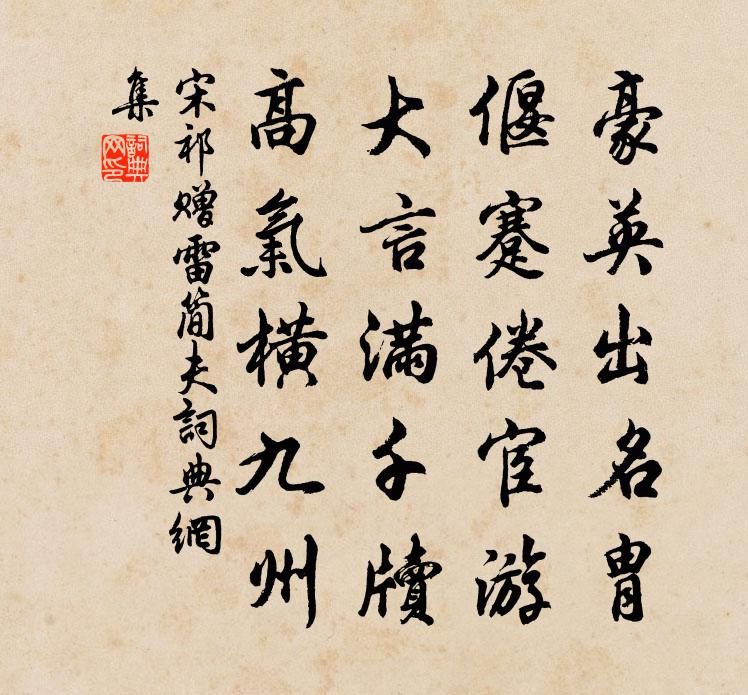 豪英出名胄
偃蹇倦宦游
大言满千牍
高气横九州
宋祁赠雷简夫词典网
集
词典网印